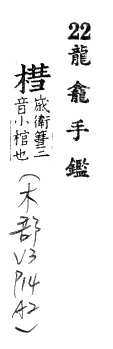 22 龍龕手鑑
歲衛篲三
音小棺也
(木部
V3
P14
A2)